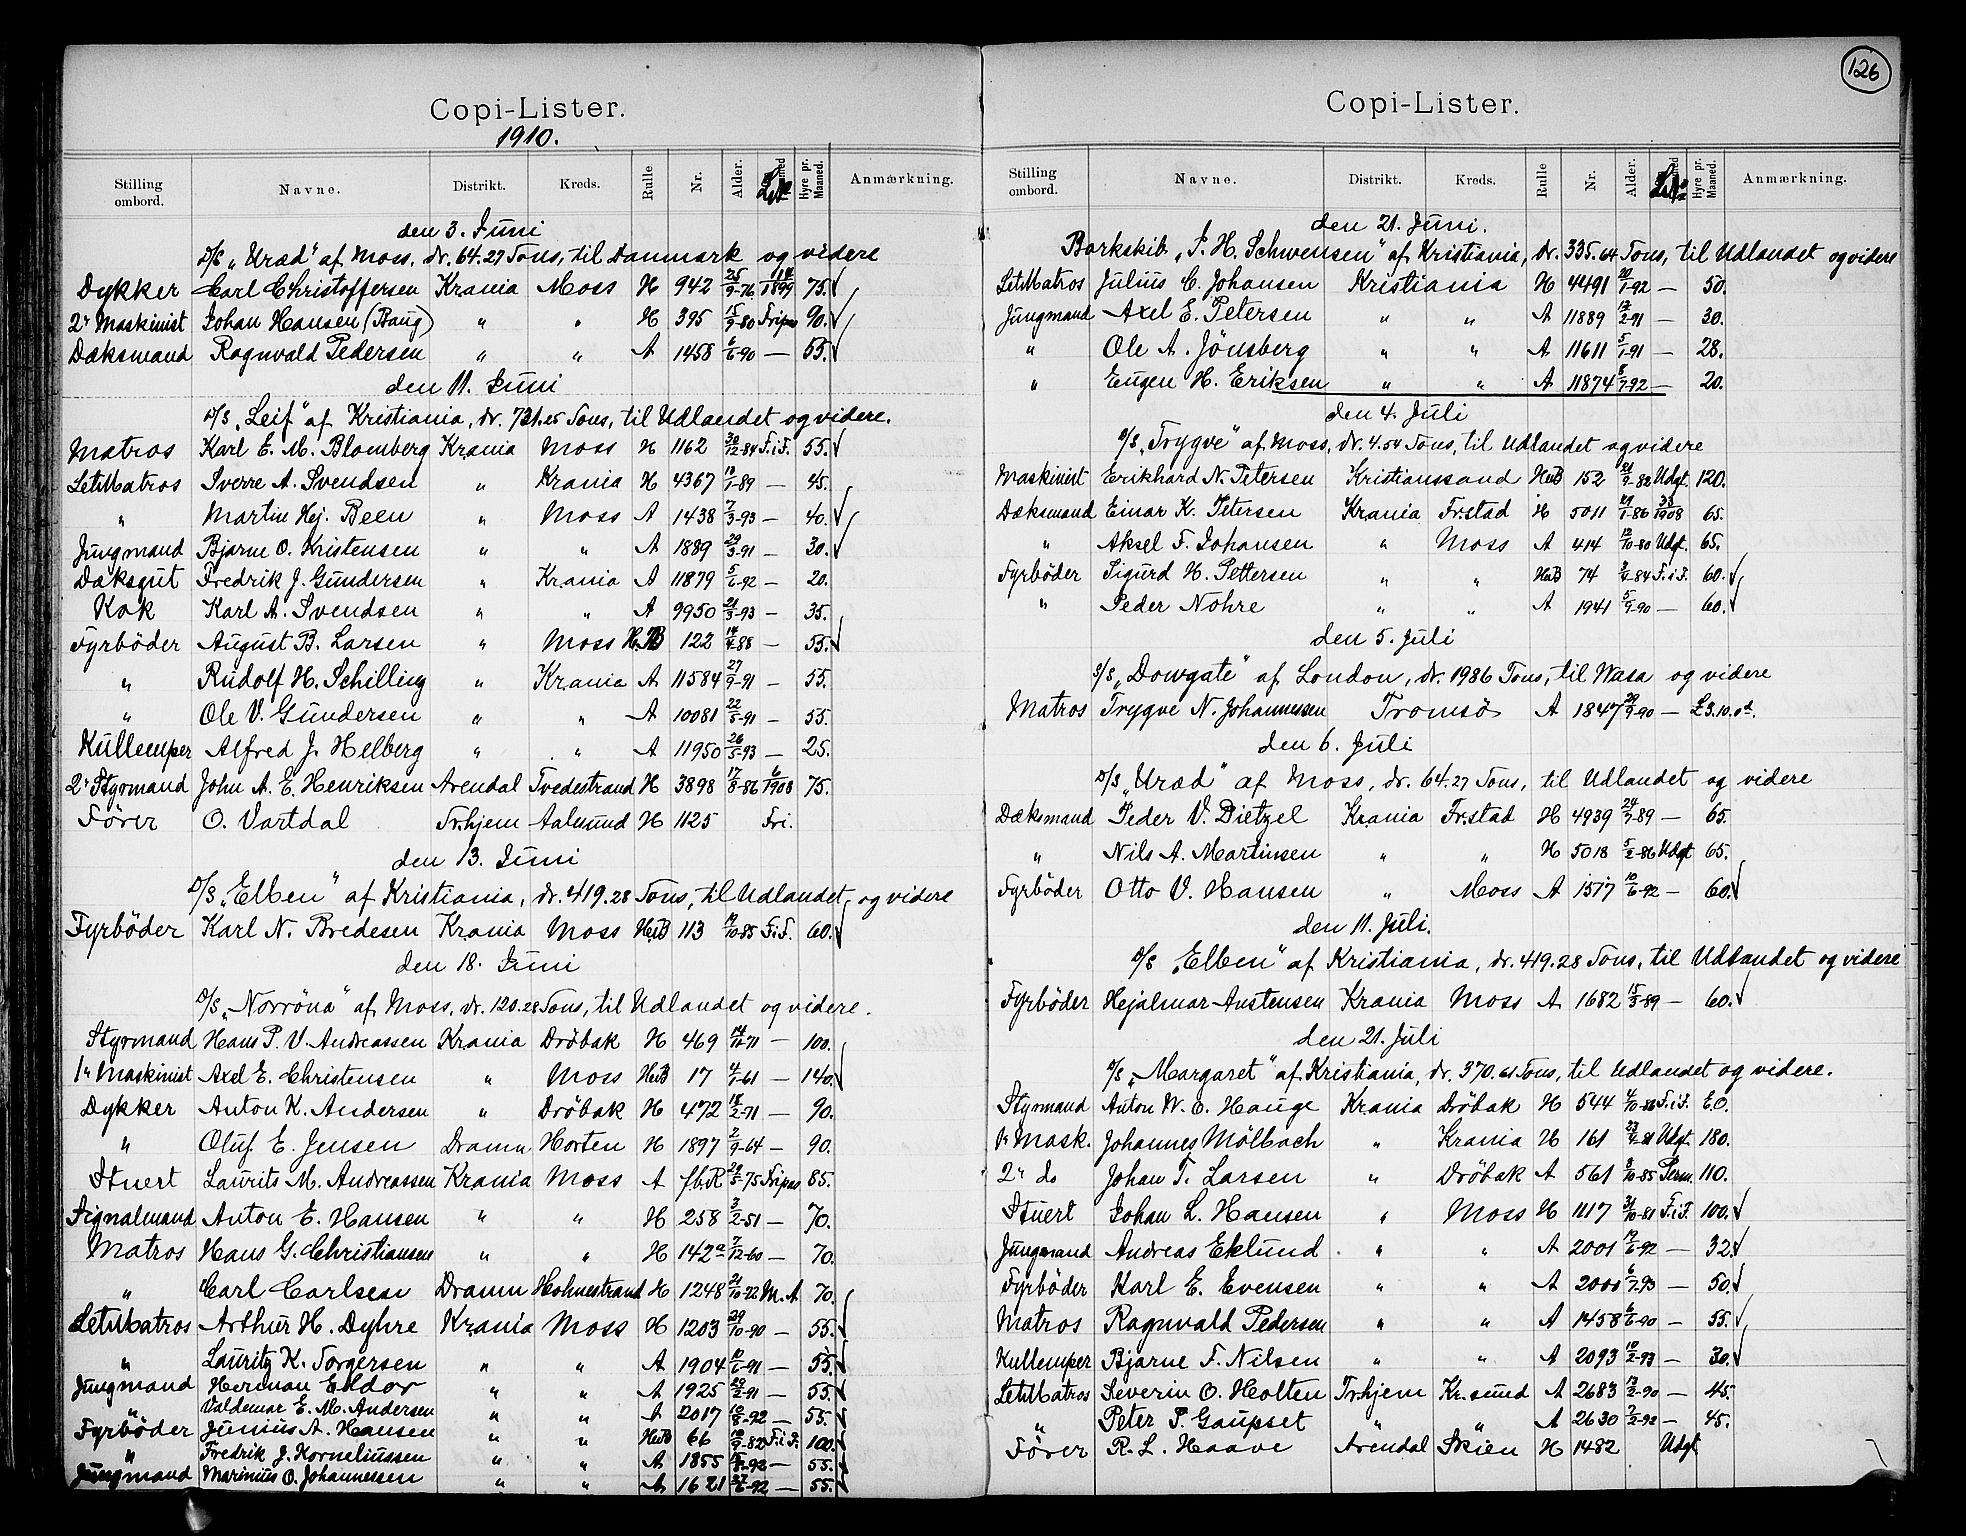 Copi-Lister.
1910.
Stilling ombord. Navne. Distrikt. Kreds. Rulle Nr. Alder. Hyre pr. Maaned. Anmærkning.
den 3. Juni
D/S „Uræd" af Moss, dr. 64.27 Tons, til Danmark og videre
Dykker Carl Christoffersen Krania Moss H 942 25/9-76 1899 75.
2n Maskinist Johan Hansen (Baug) " " H 395 15/9-80 Fripas 90.
Dæksmand Ragnvald Pedersen " " A 1458 6/6-90 — 55.
den 11. Juni
D/S „Leif" af Kristiania, dr. 731.25 Tons, til Udlandet og videre.
Matros Karl E. M. Blomberg Krania Moss H 1162 30/12-84 F.i.F. 55.
LetMatros Sverre A. Svendsen " Krania H 4367 19/1-89 — 45.
" Martin Hej. Been " Moss A 1438 7/3-93 — 40.
Jungmand Bjarne O. Kristensen " " A 1889 29/3-91 — 30.
Dæksgut Fredrik J. Gundersen " Krania A 11879 5/6-92 — 20.
Kok Karl A. Svendsen " " A 9950 21/3-93 — 35.
Fyrbøder August B. Larsen " Moss 122 14/4-88 — 55.
" Rudolf H. Schilling " Krania A 11584 27/9-91 — 55.
" Ole V. Gundersen " " A 10081 22/5-91 — 55.
Kullemper Alfred J. Helberg " " A 11950 26/5-93 — 25.
2n Styrmand John A. E. Henriksen Arendal Tvedestrand H 3898 17/8-86 6/1908 75.
Fører O. Vartdal Tr.hjem Aalesund H 1125 Fri.
den 13. Juni
D/S „Elben" af Kristiania, dr. 419.28 Tons, til Udlandet og videre
Fyrbøder Karl N. Bredesen Krania Moss HuB 113 14/10-85 F.i.F. 60.
den 18. Juni
D/S „Norröna" af Moss, dr. 120.28 Tons, til Udlandet og videre.
Styrmand Hans P. V. Andreassen Krania Dröbak H 469 14/11-71 — 100.
1n Maskinist Axel E. Christensen " Moss HuB 17 4/1-61 — 140.
Dykker Anton K. Andersen " Dröbak H 472 18/2-71 — 90.
" Oluf E. Jensen Dramn Horten H 1897 2/9-64 — 90.
Stuert Laurits M. Andreassen Krania Moss A fb.R 29/5-75 Fripas 85.
Signalmand Anton E. Hansen " " H 258 3/2-51 — 70.
Matros Hans G. Christiansen " " H 142a 7/12-60 — 70.
" Carl Carlsen Dramn Holmestrand H 1248 21/10-72 M.A 70.
LetMatros Arthur H. Dyhre Krania Moss H 1203 29/10-90 — 55.
" Lauritz K. Torgersen " " A 1904 10/6-91 — 55.
Jungmand Herman Eldor " " A 1925 29/2-91 — 55.
" Valdemar E. M. Andersen " " A 2017 10/8-92 — 55.
Fyrbøder Junius A. Hansen " " HuB 66 10/9-82 F.i.F. 100.
" Fredrik J. Korneliussen " " A 1855 15/8-92 — 55.
Jungmand Marinius O. Johannessen " " A 1621 27/6-92 — 55.
126
Copi-Lister.
Stilling ombord. Navne. Distrikt. Kreds. Rulle Nr. Alder. Hyre pr. Maaned. Anmærkning.
den 21. Juni.
Barkskib „P. H. Schwensen" af Kristiania, dr. 335.64 Tons, til Udlandet og videre
LetMatros Julius C. Johansen Kristiania H 4491 20/1-92 — 50.
Jungmand Axel E. Petersen " " A 11889 12/2-91 — 30.
" Ole A. Jönsberg " " A 11611 5/1-91 — 28.
" Eugen H. Eriksen " " A 11874 8/7-92 — 20.
den 4. Juli
D/S „Trygve" af Moss, dr. 4.54 Tons, til Udlandet og videre
Maskinist Erikhard N. Petersen Kristianssand HuB 152 21/9-82 Udgt. 120.
Dæksmand Einar K. Petersen Krania Fr.stad H 5011 27/1-86 1908 65.
" Aksel F. Johansen " Moss A 414 12/10-80 Udgt. 65.
Fyrbøder Sigurd H. Pettersen " " HuB 74 3/4-84 F.i.F. 60.
" Peder Nöhre " " A 1941 5/9-90 — 60.
den 5. Juli
S/S „Dowgate" af London, dr. 1986 Tons, til Wasa og videre
Matros Trygve N. Johannessen Tromsö A 1847 29/9-90 — £3.10.0d.
den 6. Juli
D/S „Uræd" af Moss, dr. 64.27 Tons, til Udlandet og videre
Dæksmand Peder V. Dietzel Krania Fr.stad H 4939 24/7-89 — 65.
" Nils A. Martinsen " " H 5018 5/2-86 Udgt 65.
Fyrbøder Otto V. Hansen " Moss A 1517 10/6-92 — 60.
den 11. Juli.
D/S „Elben" af Kristiania, dr. 419.28 Tons, til Udlandet og videre
Fyrbøder Hejalmar Austensen Krania Moss A 1682 15/3-89 — 60.
den 21. Juli
D/S „Margaret" af Kristiania, dr. 370.61 Tons, til Udlandet og videre.
Styrmand Anton W. O. Hauge Krania Dröbak H 544 4/10-86 F.i.F. E.O.
1n Mask. Johannes Mölbach " Krania H 161 23/4-81 Udgt. 180.
2n do Johan T. Larsen " Dröbak A 561 8/10-85 Perm. 110.
Stuert Johan L. Hansen " Moss H 1117 31/10-81 F.i.F. 100.
Jungmand Andreas Eklund " " A 2001 17/6-92 — 32.
Fyrbøder Karl E. Evensen " " A 2000 6/7-93 — 50.
Matros Ragnvald Pedersen " " A 1458 6/6-90 — 55.
Kullemper Bjarne F. Nilsen " " A 2093 10/2-93 — 30.
LetMatros Severin O. Holten Tr.hjem Kr.sund A 2683 12/2-90 — 45.
" Peter P. Gaupset " " A 2630 7/2-92 — 45.
Fører R. L. Haave Arendal Skien H 1482 Udgt